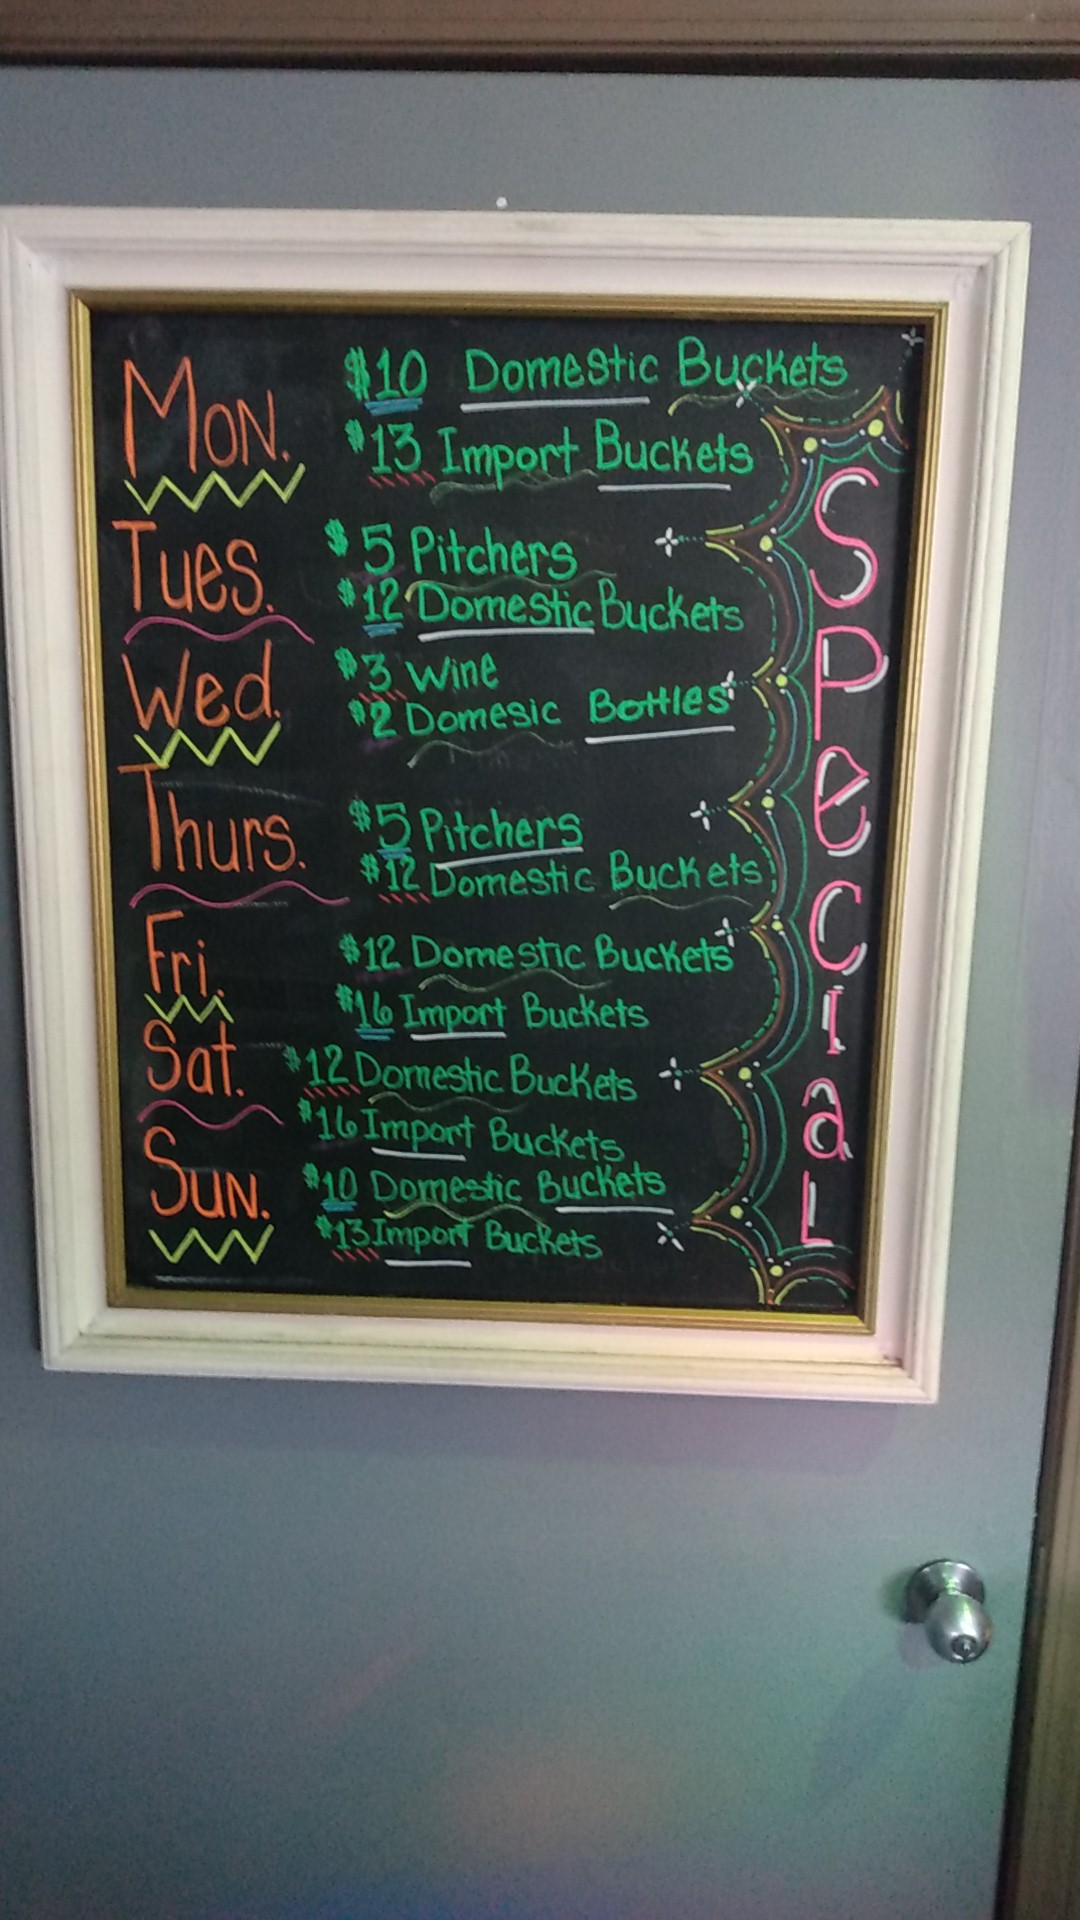 Mon.
$10 Domestic Buckets
$13 Import Buckets
Tues.
$5 Pitchers
$12 Domestic Buckets
Wed.
$3 Wine
$2 Domesic Bottles
Thurs.
$5 Pitchers
$12 Domestic Buckets
Fri.
$12 Domestic Buckets
$16 Import Buckets
Sat.
$12 Domestic Buckets
$16 Import Buckets
Sun.
$10 Domestic Buckets
$13 Import Buckets
SPeCIaL